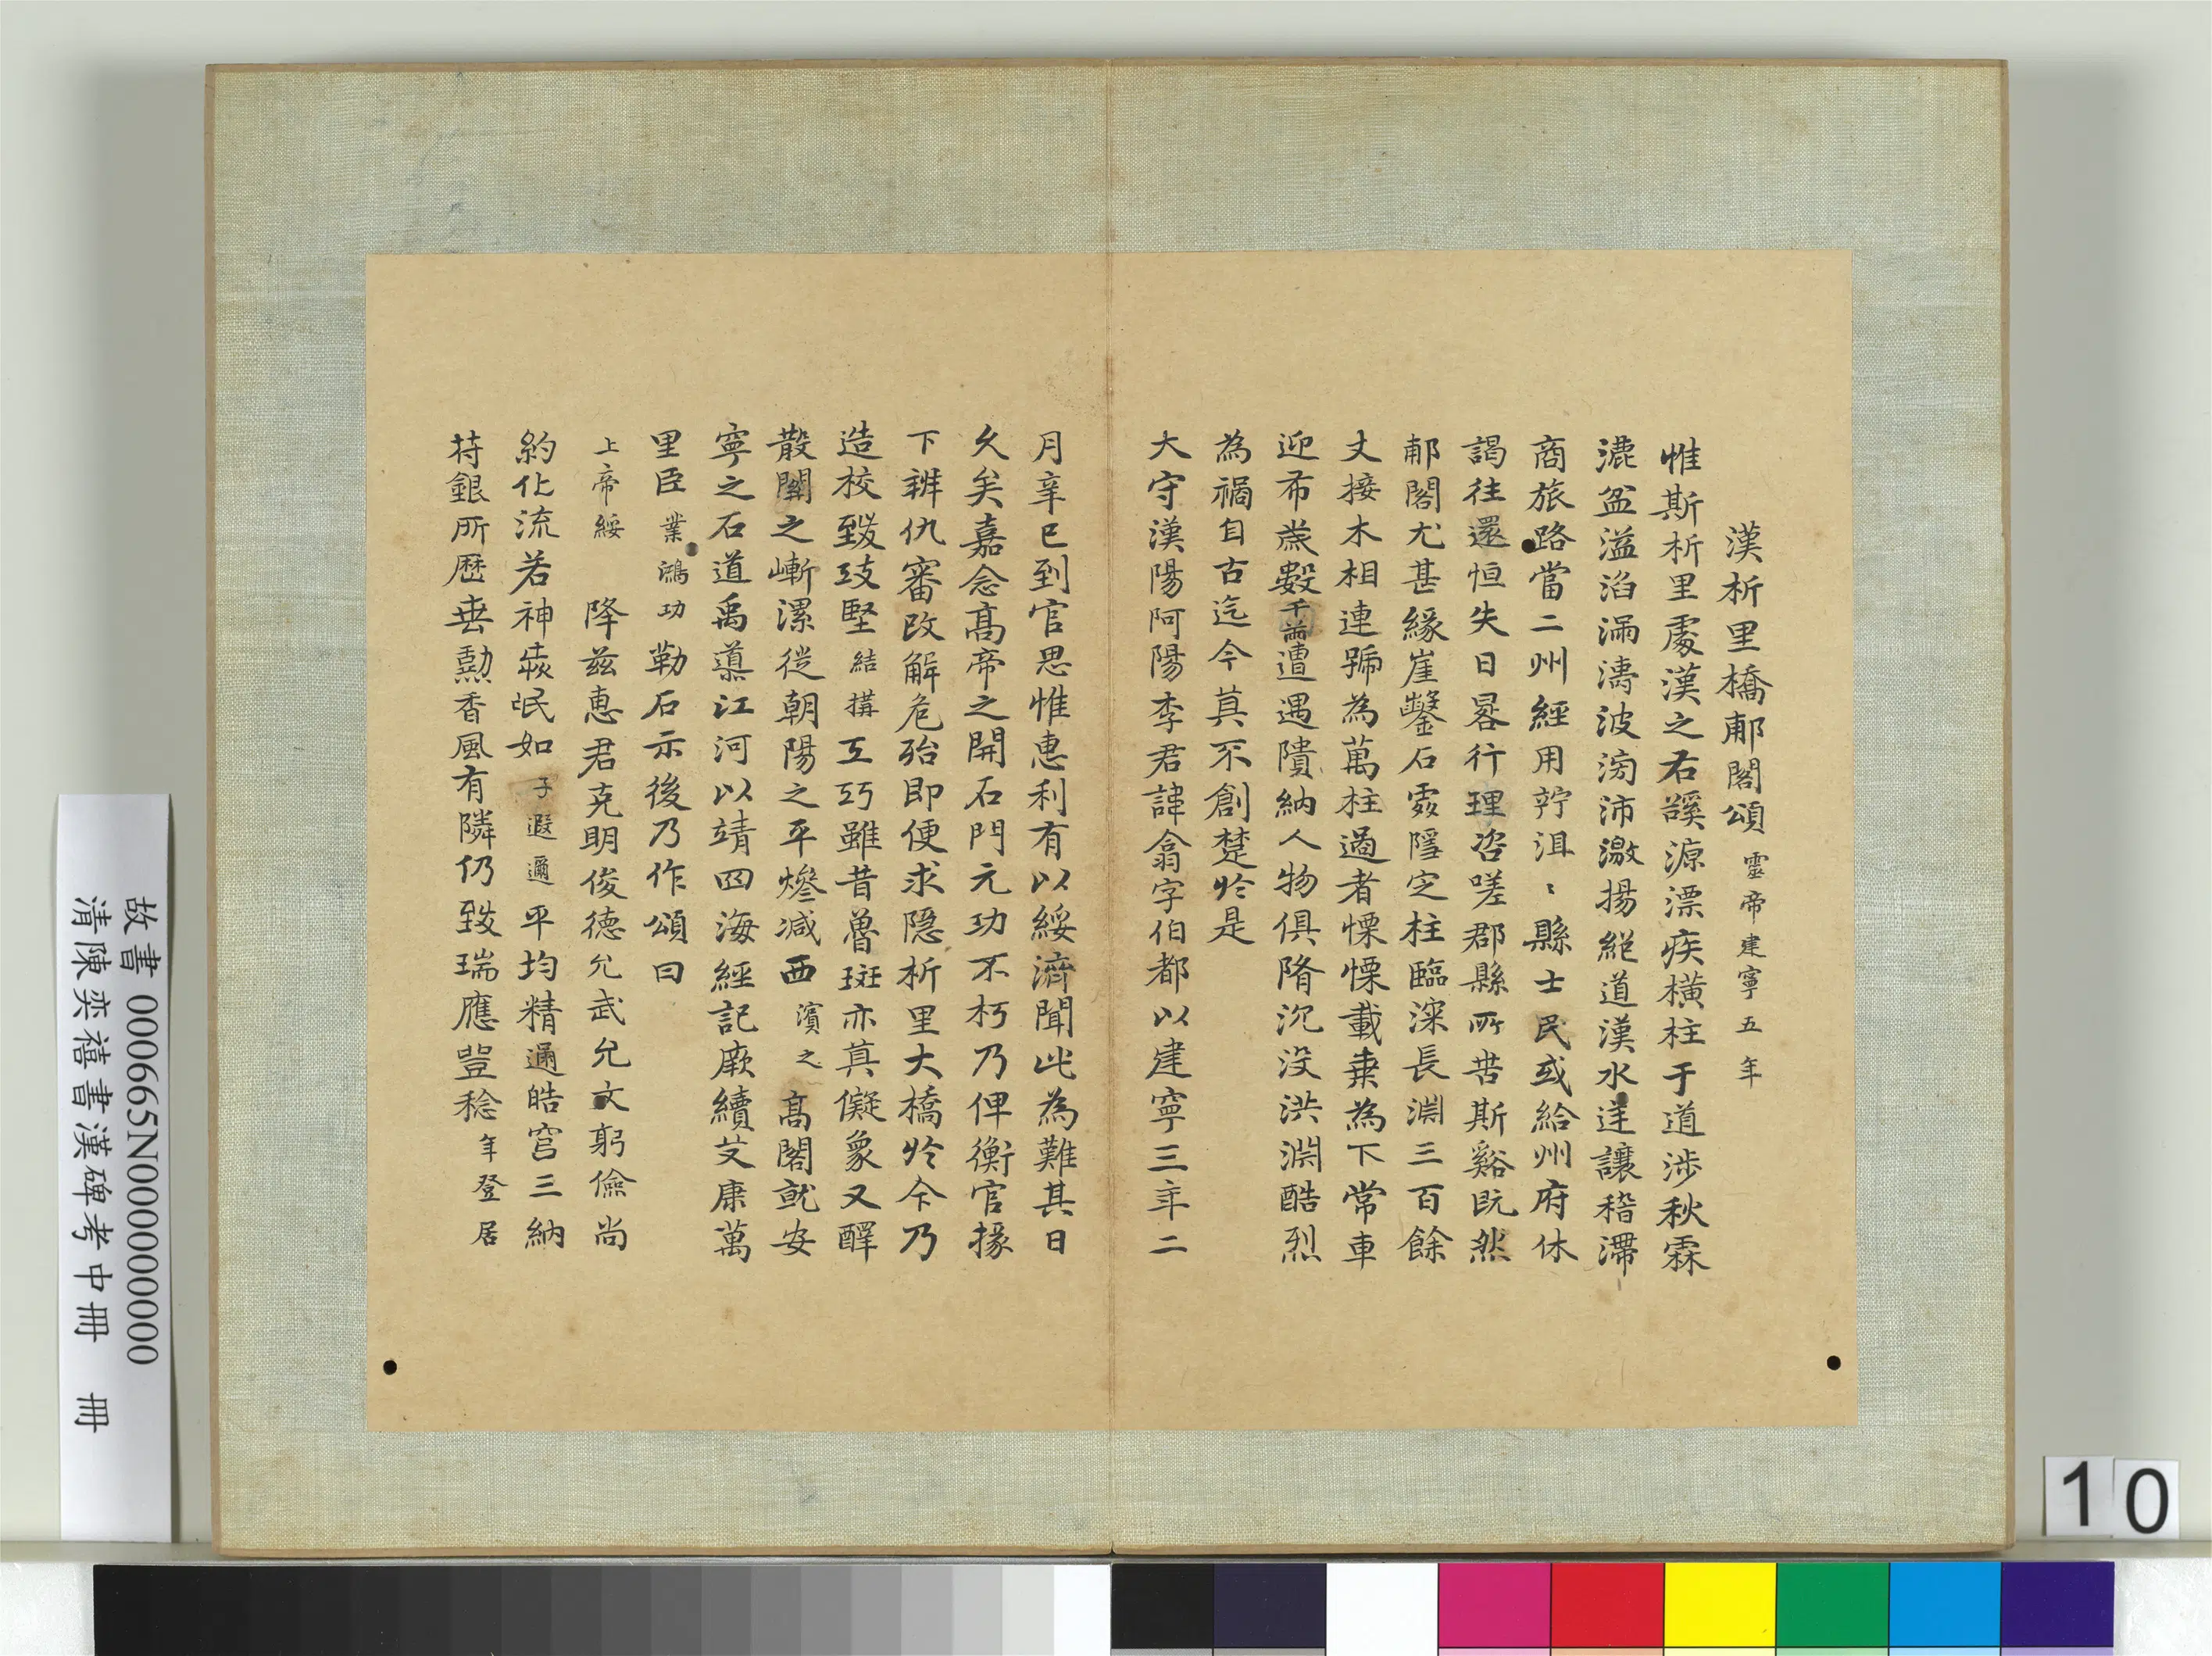 漢析里橋郙閣頌 靈帝建寧五年
惟斯析里處漢之右谿源漂疾橫柱于道涉秋霖
漉盆溢滔涌濤波滂沛激揚絕道漢水逆讓稽滯
商旅路當二州經用狞沮〻縣士民或給州府休
謁往還恒失日晷行理咨嗟郡縣所苦斯谿既然
郙閣尤甚緣崖鑿石處隱定柱臨深長淵三百餘
丈接木相連號為萬柱過者慄慄載乘為下常車
迎布歲數千兩遭遇隤納人物俱隋沉没洪淵酷烈
為禍自古迄今莫不創楚於是
大守漢陽阿陽李君諱翕字伯都以建寧三年二
月辛巳到官思惟惠利有以綏濟聞此為難其日
久矣嘉念高帝之開石門元功不朽乃俾衡官掾
下辨仇審改解危殆即便求隱析里大橋於今乃
造校致攻堅結搆工巧雖昔魯班亦莫儗象又醳
散關之嶃漯從朝陽之平燺减西濱之高閣就安
寧之石道禹導江河以靖四海經記厥續艾康萬
里臣業鴻功勒石示後乃作頌曰
上帝綏 降兹惠君克明俊德允武允文躬儉尚
約化流若神愛氓如子遐邇平均精通皓穹三納
苻銀所歷垂勳香風有隣仍致瑞應豈稔年登居
故書 000665N000000000
清陳奕禧書漢碑考中冊 冊
10